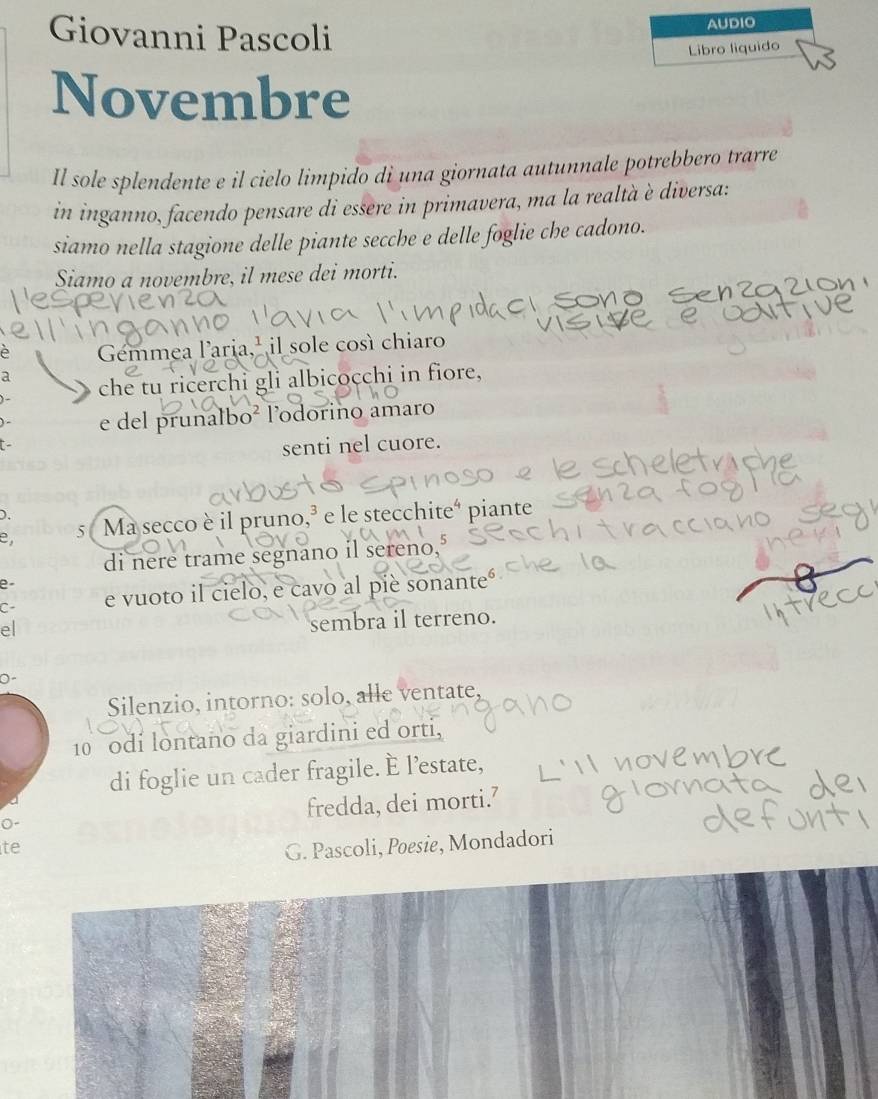 Giovanni Pascoli
AUDIO
Libro liquido
Novembre
Il sole splendente e il cielo limpido di una giornata autunnale potrebbero trarre
in inganno, facendo pensare di essere in primavera, ma la realtà è diversa:
siamo nella stagione delle piante secche e delle foglie che cadono.
Siamo a novembre, il mese dei morti.
l'esperienza
ell'inganno l'avia l'impidaci sono senzazioni
visive e oditive
Gémmea l'aria,¹ il sole così chiaro
e fredda
che tu ricerchi gli albicocchi in fiore,
biancospino
e del prunalbo² l'odorino amaro
senti nel cuore.
arbusto spinoso e le scheletriche
senza foglia
5 Ma secco è il pruno,³ e le stecchite⁴ piante
con i loro rami secchi tracciano segn
neri
di nere trame segnano il sereno,⁵
sotto il piede che la
e vuoto il cielo, e cavo al piè sonante⁶
intrecc
calpesta
sembra il terreno.
Silenzio, intorno: solo, alle ventate,
lontano provengano
10 odi lontano da giardini ed orti,
di foglie un cader fragile. È l'estate,
L'11 novembre
giornata dei
fredda, dei morti.⁷
defunti
G. Pascoli, Poesie, Mondadori
è
a
t-
e,
e-
c-
el
o-
o-
te